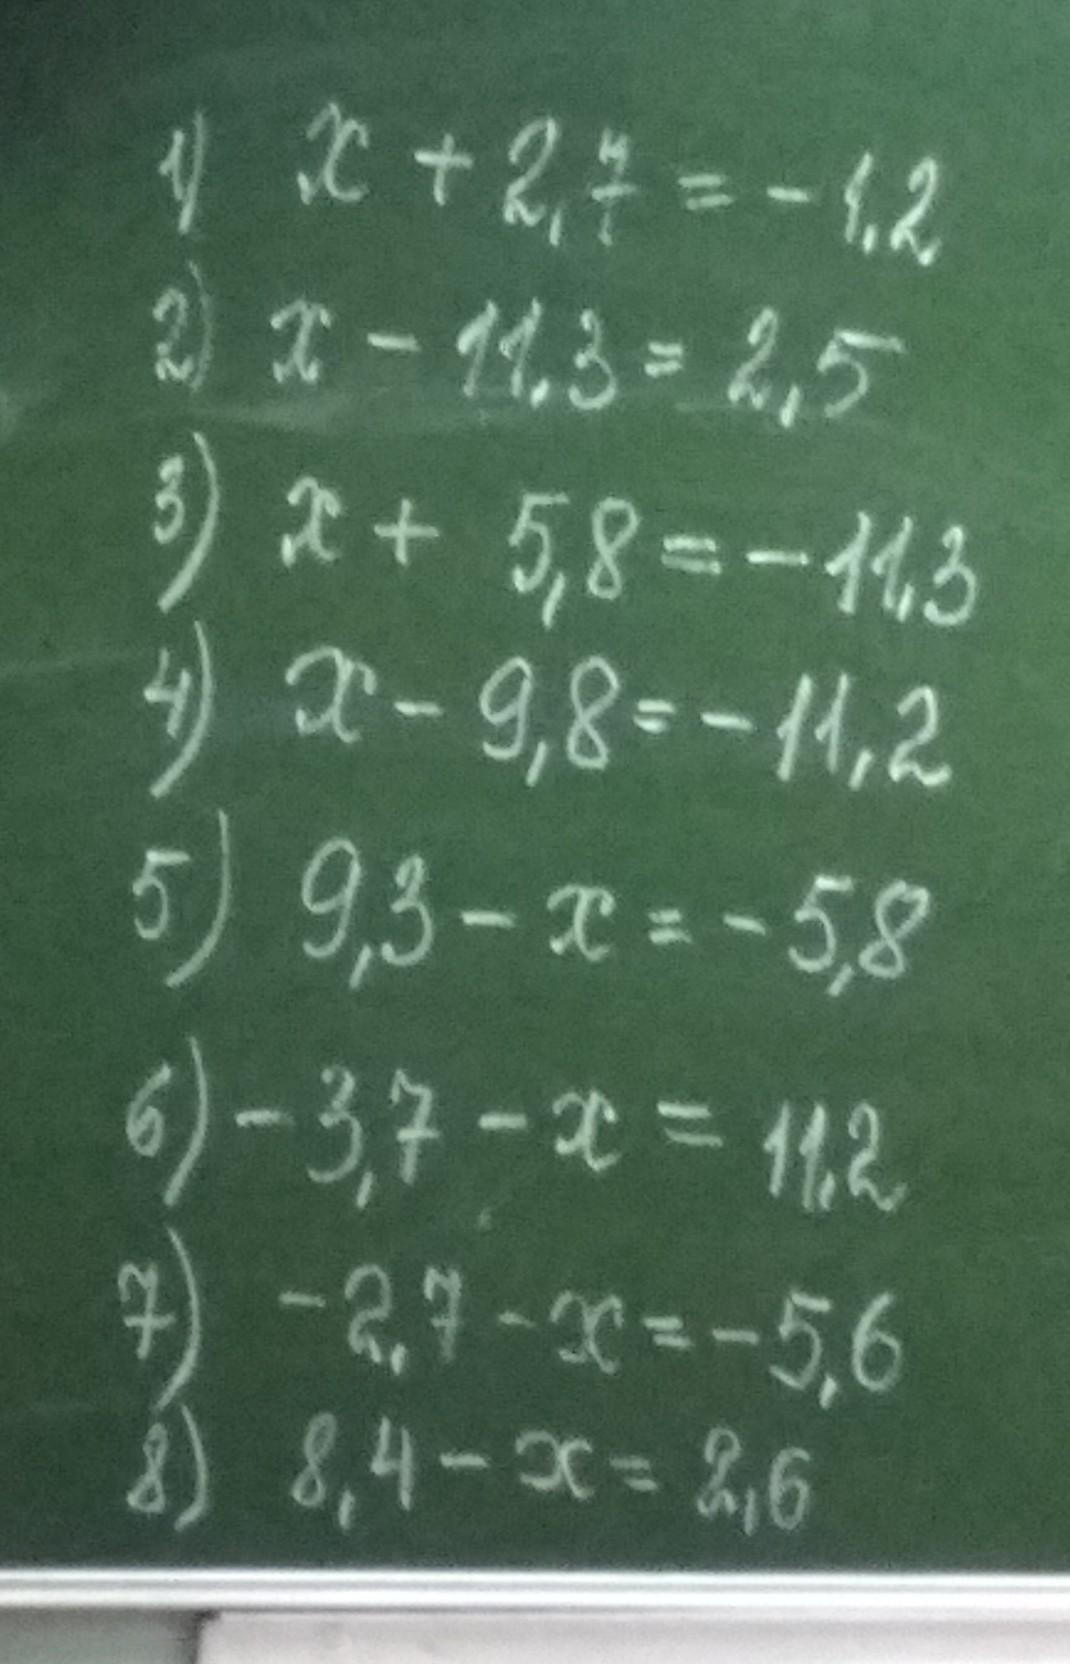 1) x + 2,7 = - 1,2
2) x - 11,3 = 2,5
3) x + 5,8 = - 11,3
4) x - 9,8 = - 11,2
5) 9,3 - x = - 5,8
6) - 3,7 - x = 11,2
7) - 2,7 - x = - 5,6
8) 8,4 - x = 2,6